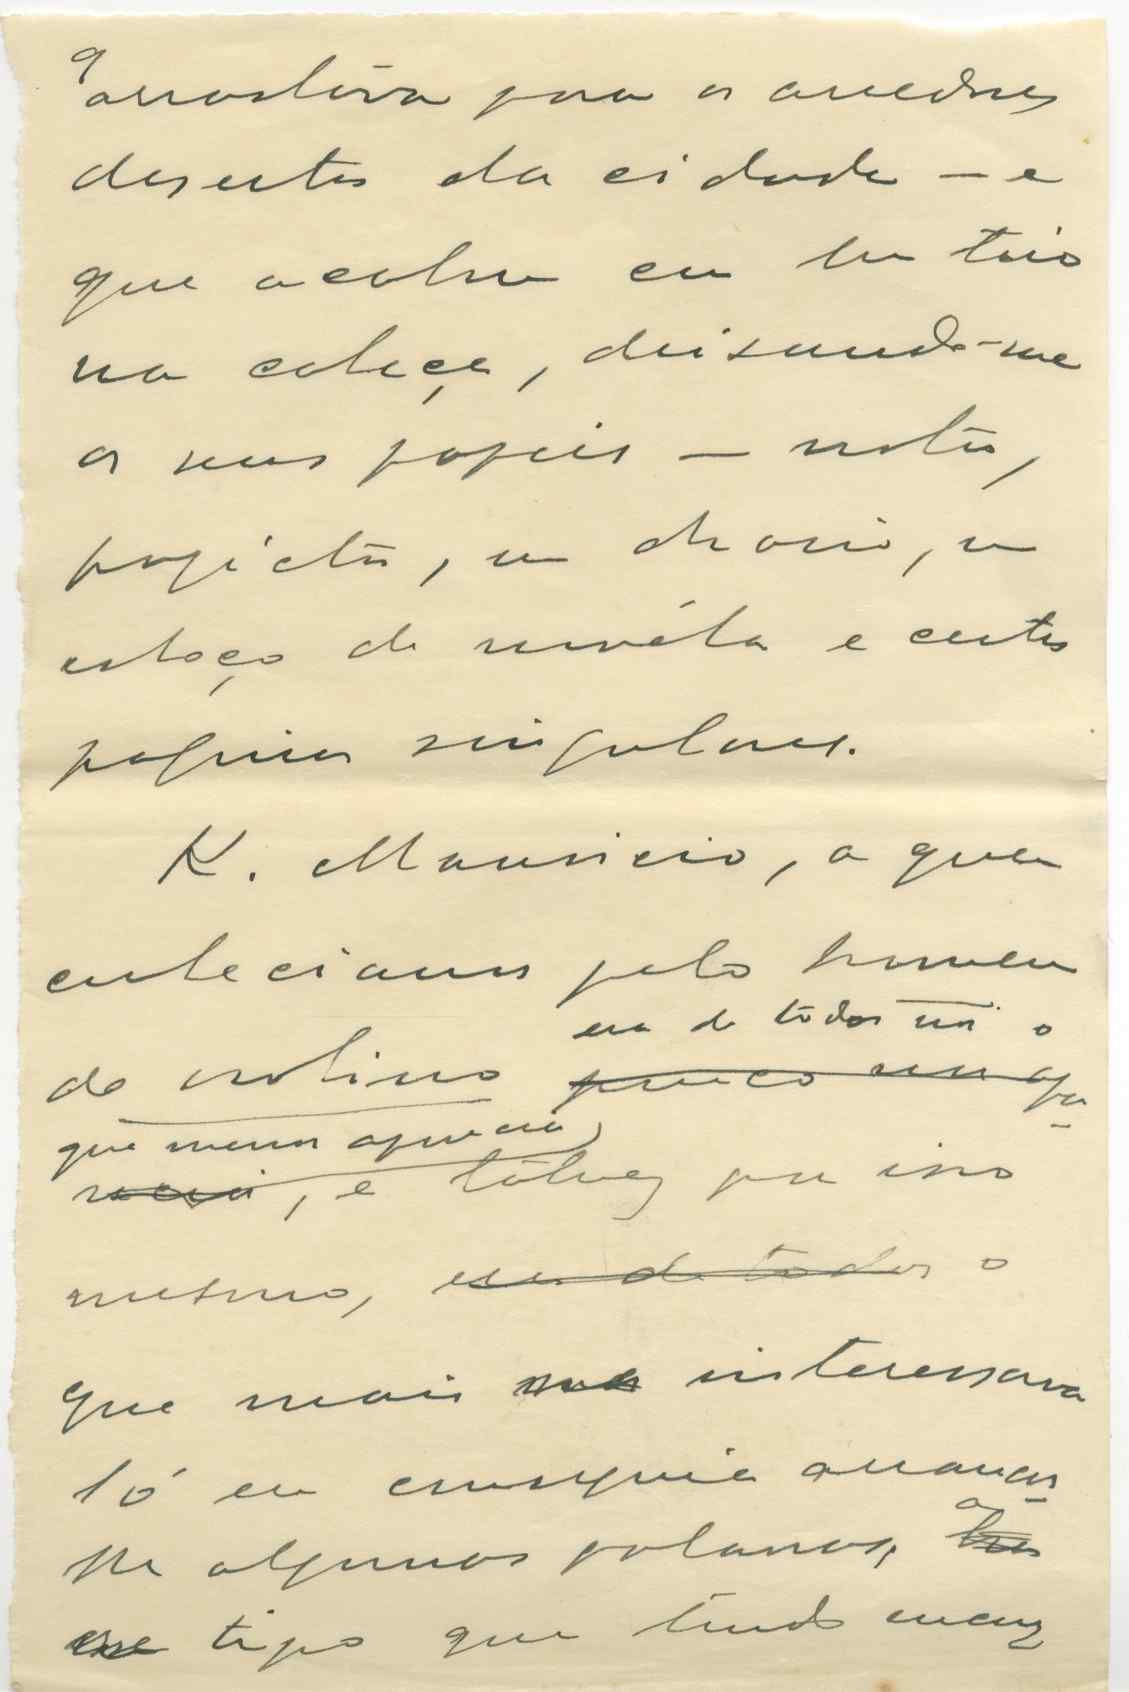 q arrastára para os arredores
desertos da cidade — e
que acabou com um tiro
na cabeça, deixando-me
os seus papeis — notas,
projectos, um diario, um
esboço de novéla e certas
paginas singulares.
K. Mauricio, a quem
conheciamos pelo homem
era de todos nós o
do violino pouco nos apa-
que menos aparecia
recia, e talvez por isso
mesmo, era de todos o
que mais nos interessava
só eu conseguia arrancar-
lhe algumas palavras, a
tipo que tendo